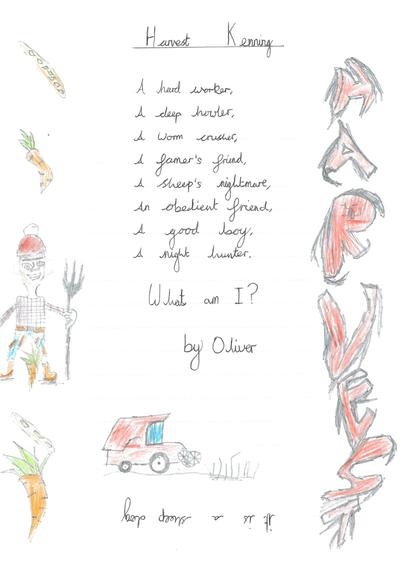 Harvest Kenning
A hard worker,
A deep howler,
A worm crusher,
A famer's friend,
A sheep's nightmare,
An obedient friend,
A good boy,
A night hunter.
What am I?
by Oliver
it is a sheep dog
HARVEST